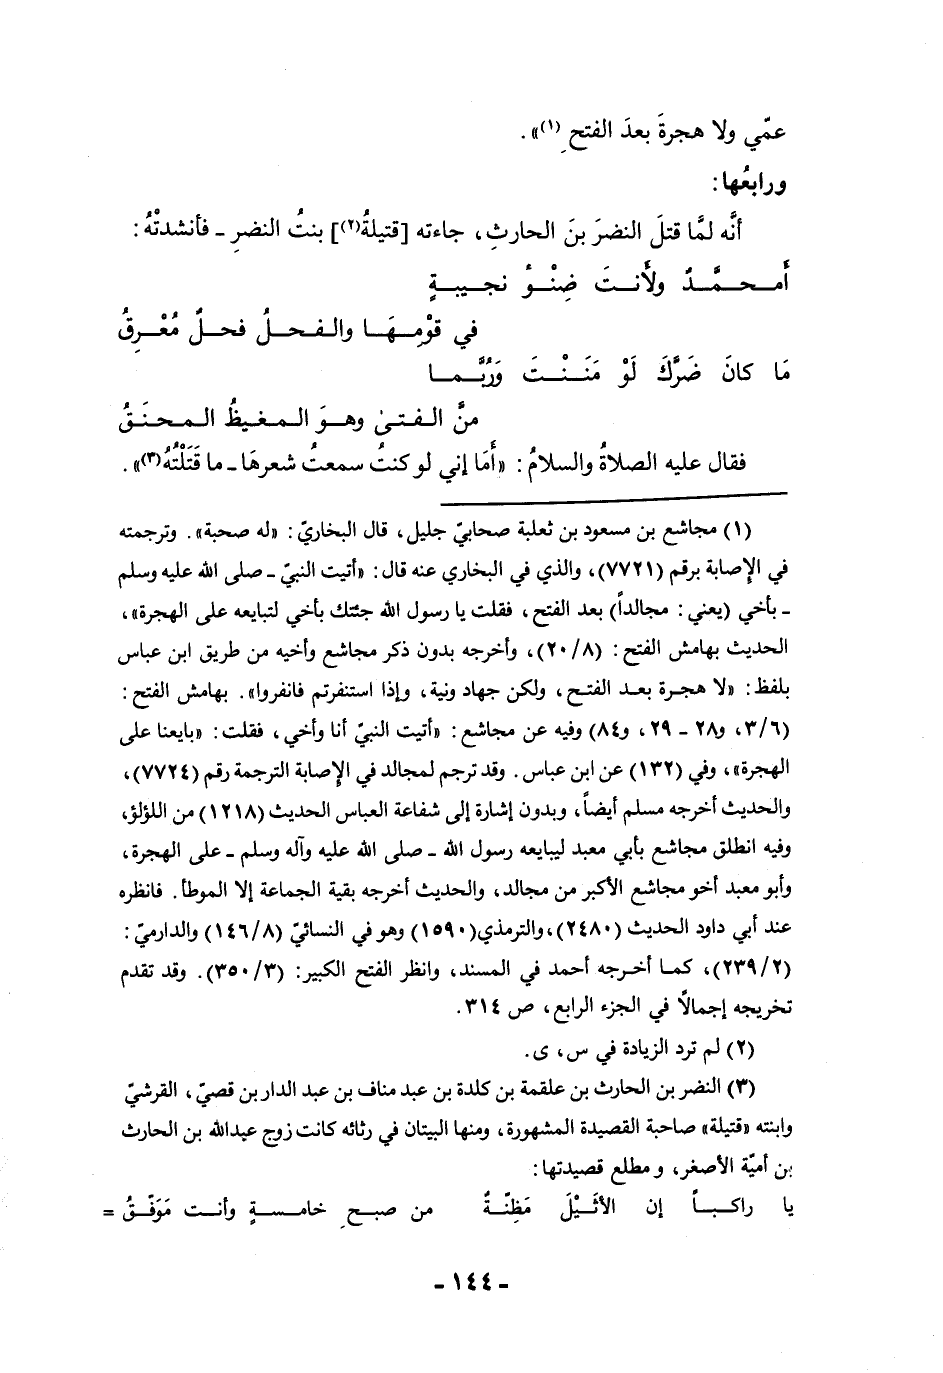 عمّي ولا هجرةَ بعدَ الفتحِ (١)».
ورابعُها:
أنَّه لمَّا قتلَ النضرَ بنَ الحارثِ، جاءته [قتيلةُ(٢)] بنتُ النضرِ ـ فأنشدتْهُ:
أَمحمَّدٌ ولأَنتَ ضِنْوُ نجيبةٍ
في قوْمِهَا والفحلُ فحلٌ مُعْرِقُ
مَا كانَ ضَرَّكَ لَوْ مَنَنْتَ وَرُبَّما
منَّ الفتىٰ وهوَ المغيظُ المحنَقُ
فقال عليه الصلاةُ والسلامُ: «أَمَا إني لو كنتُ سمعتُ شعرهَا ـ ما قَتَلْتُهُ(٣)».
(١) مجاشع بن مسعود بن ثعلبة صحابيّ جليل، قال البخاريّ: «له صحبة». وترجمته
في الإصابة برقم (٧٧٢١)، والذي في البخاري عنه قال: «أتيت النبيّ ـ صلى الله عليه وسلم
ـ بأخي (يعني: مجالداً) بعد الفتح، فقلت يا رسول الله جئتك بأخي لتبايعه على الهجرة»،
الحديث بهامش الفتح: (٢٠/٨)، وأخرجه بدون ذكر مجاشع وأخيه من طريق ابن عباس
بلفظ: «لا هجرة بعد الفتح، ولكن جهاد ونية، وإذا استنفرتم فانفروا». بهامش الفتح:
(٣/٦، و٢٨ ـ ٢٩، و٨٤) وفيه عن مجاشع: «أتيت النبيّ أنا وأخي، فقلت: «بايعنا على
الهجرة»، وفي (١٣٢) عن ابن عباس. وقد ترجم لمجالد في الإصابة الترجمة رقم (٧٧٢٤)،
والحديث أخرجه مسلم أيضاً، وبدون إشارة إلى شفاعة العباس الحديث (١٢١٨) من اللؤلؤ،
وفيه انطلق مجاشع بأبي معبد ليبايعه رسول الله ـ صلى الله عليه وآله وسلم ـ على الهجرة،
وأبو معبد أخو مجاشع الأكبر من مجالد، والحديث أخرجه بقية الجماعة إلا الموطأ. فانظره
عند أبي داود الحديث (٢٤٨٠)، والترمذي(١٥٩٠) وهو في النسائيّ (١٤٦/٨) والدارميّ:
(٢٣٩/٢)، كما أخرجه أحمد في المسند، وانظر الفتح الكبير: (٣٥٠/٣). وقد تقدم
تخريجه إجمالًا في الجزء الرابع، ص ٣١٤.
(٢) لم ترد الزيادة في س، ى.
(٣) النضر بن الحارث بن علقمة بن كلدة بن عبد مناف بن عبد الدار بن قصيّ، القرشيّ
وابنته «قتيلة» صاحبة القصيدة المشهورة، ومنها البيتان في رثائه كانت زوج عبدالله بن الحارث
بن أميّة الأصغر، ومطلع قصيدتها:
يا راكباً إن الأثَيْلَ مَظِنّةٌ من صبحِ خامسةٍ وأنت مَوَفّقُ =
ـ ١٤٤ ـ